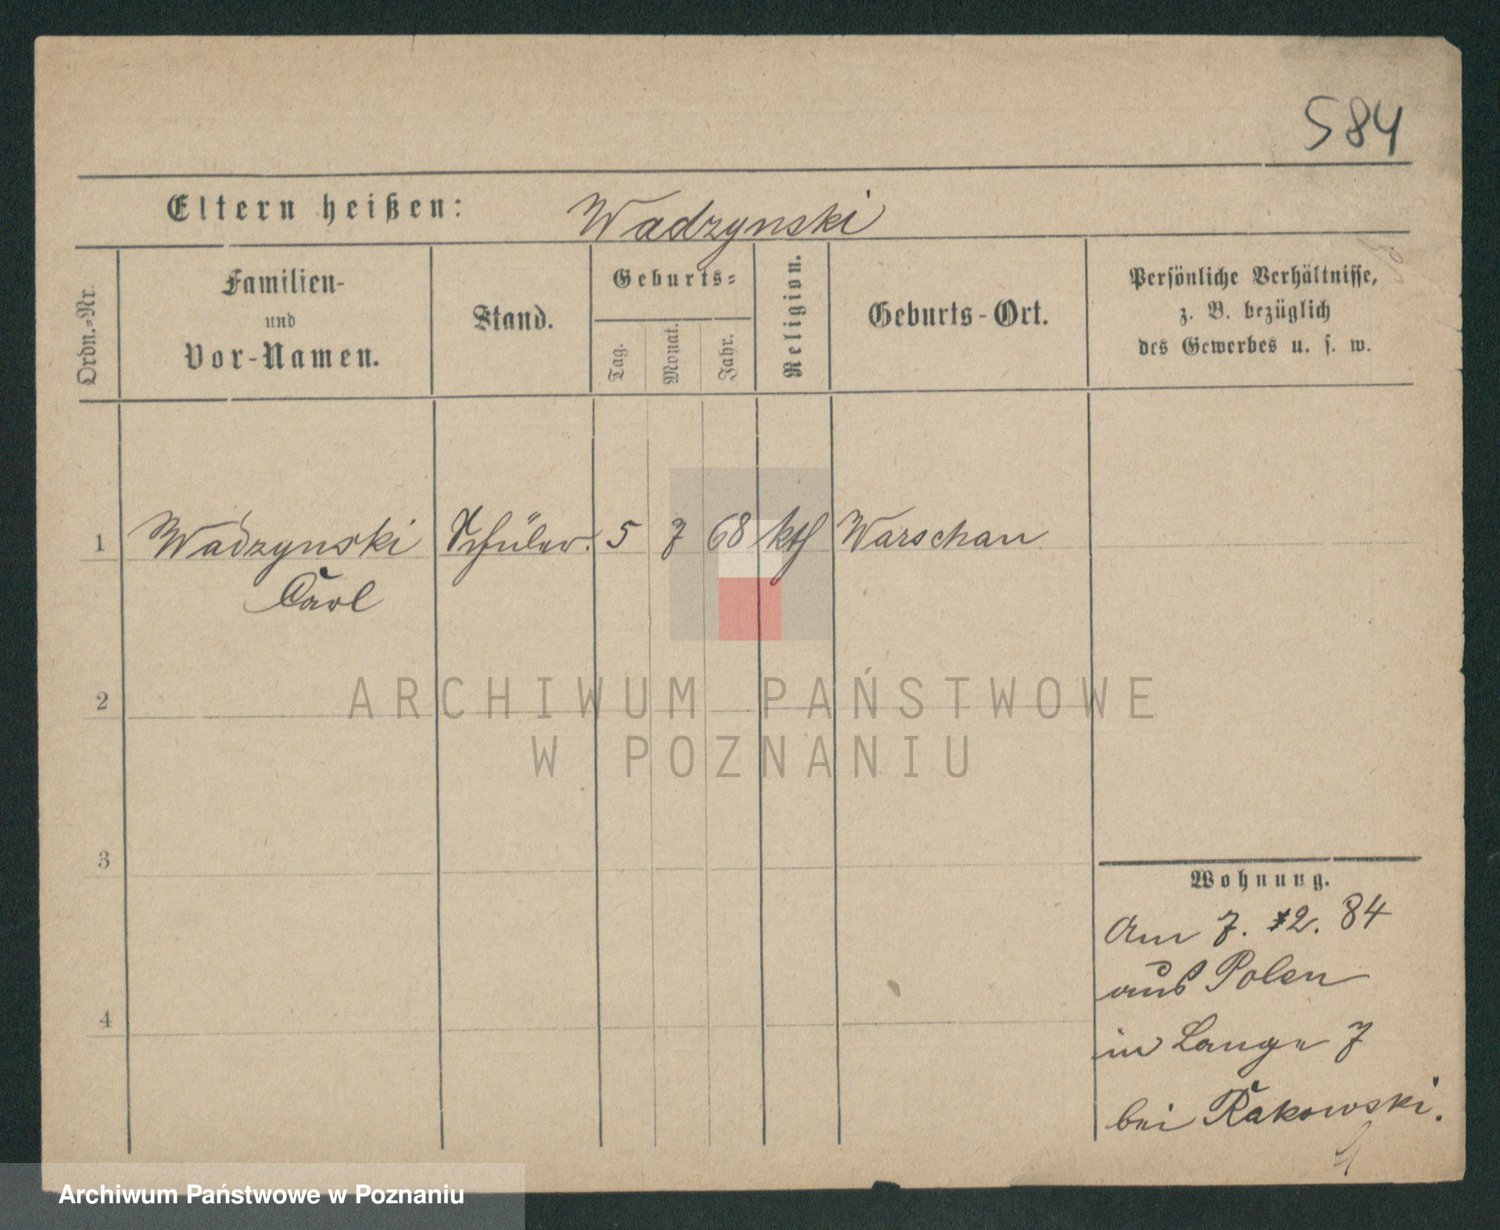 584
Eltern heißen: Wadzynski
Ordn.=Nr.
Familien-
und
Vor-Namen.
Stand.
Geburts=
Tag.
Monat.
Jahr.
Religion.
Geburts-Ort.
Persönliche Verhältnisse,
z. B. bezüglich
des Gewerbes u. s. w.
1 Wadzynski Schüler. 5 7 68 kth Warschau
Carl
ARCHIWUM PAŃSTWOWE
W POZNANIU
2
3
4
Wohnung.
Am 7. 12. 84
aus Polen
in Lange 7
bei Rakowski.
Archiwum Państwowe w Poznaniu